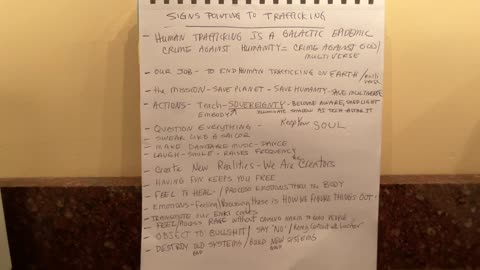 SIGNS POINTING TO TRAFFICKING
- HUMAN TRAFFICKING IS A GALACTIC EPIDEMIC
CRIME AGAINST HUMANITY = CRIME AGAINST GOD/
MULTIVERSE
- OUR JOB - TO END HUMAN TRAFFICKING ON EARTH/
- the MISSION - SAVE PLANET - SAVE HUMANITY - SAVE MULTIVERSE
- ACTIONS - Teach - SOVEREIGNTY - BECOME AWARE, SHED LIGHT
EMBODY SHADOW AI TECH
- QUESTION EVERYTHING - KEEP YOUR SOUL
- SWEAR LIKE A SAILOR
- MAKE DANCEABLE MUSIC - DANCE
- LAUGH - SMILE - RAISES FREQUENCY
- Create New Realities - We Are Creators
- HAVING FUN KEEPS YOU FREE
- FEEL TO HEAL - / PROCESS EMOTIONS THRU the BODY
- EMOTIONS - Feeling/ these is HOW WE FIGURE THINGS OUT -
- TRANSMUTE OUR
- FEEL/ RAGE without CAUSING HARM to GOOD PEOPLE
- OBJECT TO BULLSHIT / SAY 'NO' /
- DESTROY OLD SYSTEMS / BUILD NEW SYSTEMS